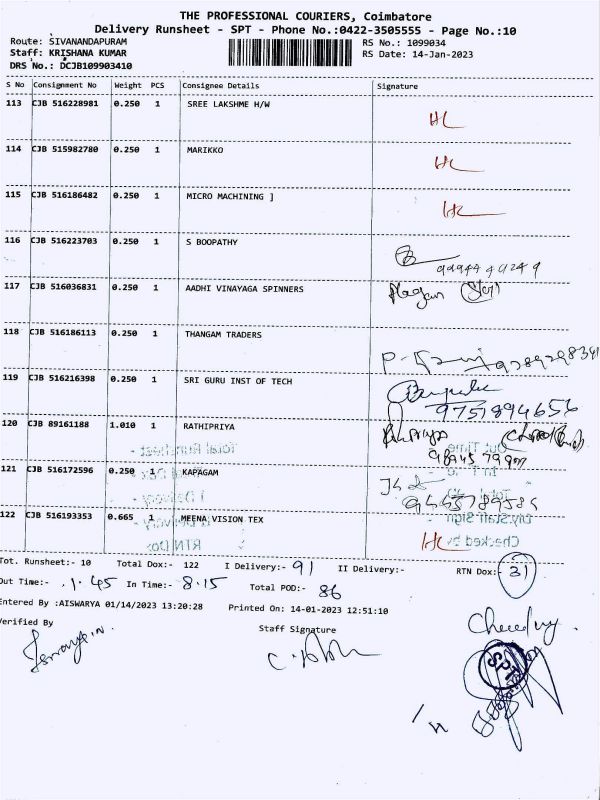 THE PROFESSIONAL COURIERS, Coimbatore
Delivery Runsheet - SPT - Phone No.:0422-3505555 - Page No.:10
Route: SIVANANDAPURAM
RS No.: 1099034
Staff: KRISHANA KUMAR
RS Date: 14-Jan-2023
DRS No.: DCJB109903410
S No Consignment No Weight PCS Consignee Details Signature
113 CJB 516228981 0.250 1 SREE LAKSHME H/W
114 CJB 515982780 0.250 1 MARIKKO
115 CJB 516186482 0.250 1 MICRO MACHINING ]
116 CJB 516223703 0.250 1 S BOOPATHY
117 CJB 516036831 0.250 1 AADHI VINAYAGA SPINNERS
118 CJB 516186113 0.250 1 THANGAM TRADERS
119 CJB 516216398 0.250 1 SRI GURU INST OF TECH
9751894656
120 CJB 89161188 1.010 1 RATHIPRIYA
121 CJB 516172596 0.250 1 KAPAGAM
122 CJB 516193353 0.665 1 MEENA VISION TEX
Tot. Runsheet:- 10 Total Dox:- 122 I Delivery:- 91 II Delivery:- RTN Dox:- 31
Out Time:- 1.45 In Time:- 8.15 Total POD:- 86
Entered By :AISWARYA 01/14/2023 13:20:28 Printed On: 14-01-2023 12:51:10
Verified By
Staff Signature